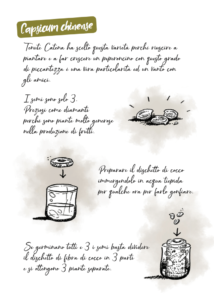 Capsicum chinense
Tenute Catina ha scelto questa varietà perché riuscire a
piantare e a far crescere un peperoncino con questo grado
di piccantezza è una vera particolarità ed un vanto con
gli amici.
I semi sono solo 3.
Preziosi come diamanti
perché sono piante molto generose
nella produzione di frutti.
Preparare il dischetto di cocco
immergendolo in acqua tiepida
per qualche ora per farlo gonfiare.
Se germinano tutti e 3 i semi basta dividere
il dischetto di fibra di cocco in 3 parti
e si ottengono 3 piante separate.